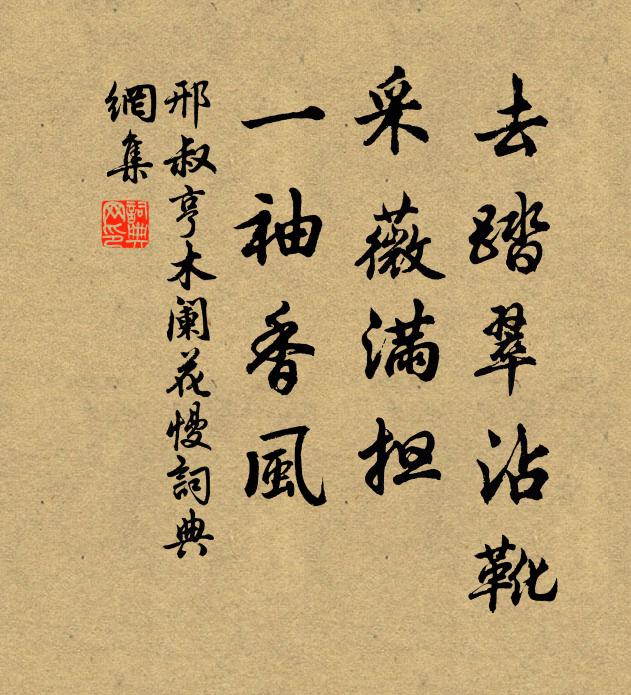 去踏翠沾靴
采薇满担
一袖香風
邢叔亨木阑花慢詞典
網集
詞典網印